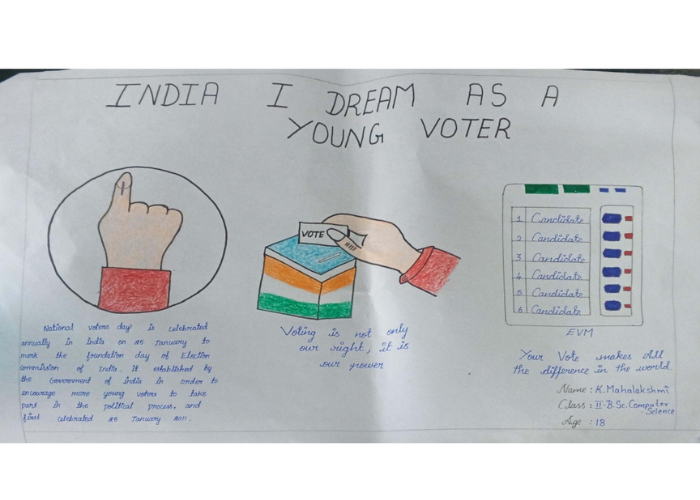 INDIA I DREAM AS A
YOUNG VOTER
VOTE
National voters day is celebrated
annually in India on 25 January to
mark the foundation day of Election
commission of India. It established by
the Government of India in order to
encourage more young voters to take
part in the political process, and
first celebrated 25 January 2011.
Voting is not only
our right, it is
our power
1 Candidate
2 Candidate
3 Candidate
4 Candidate
5 Candidate
6 Candidate
EVM
Your Vote makes all
the difference in the world.
Name : K. Mahalakshmi
Class : II-B.Sc.Computer
Science
Age : 18